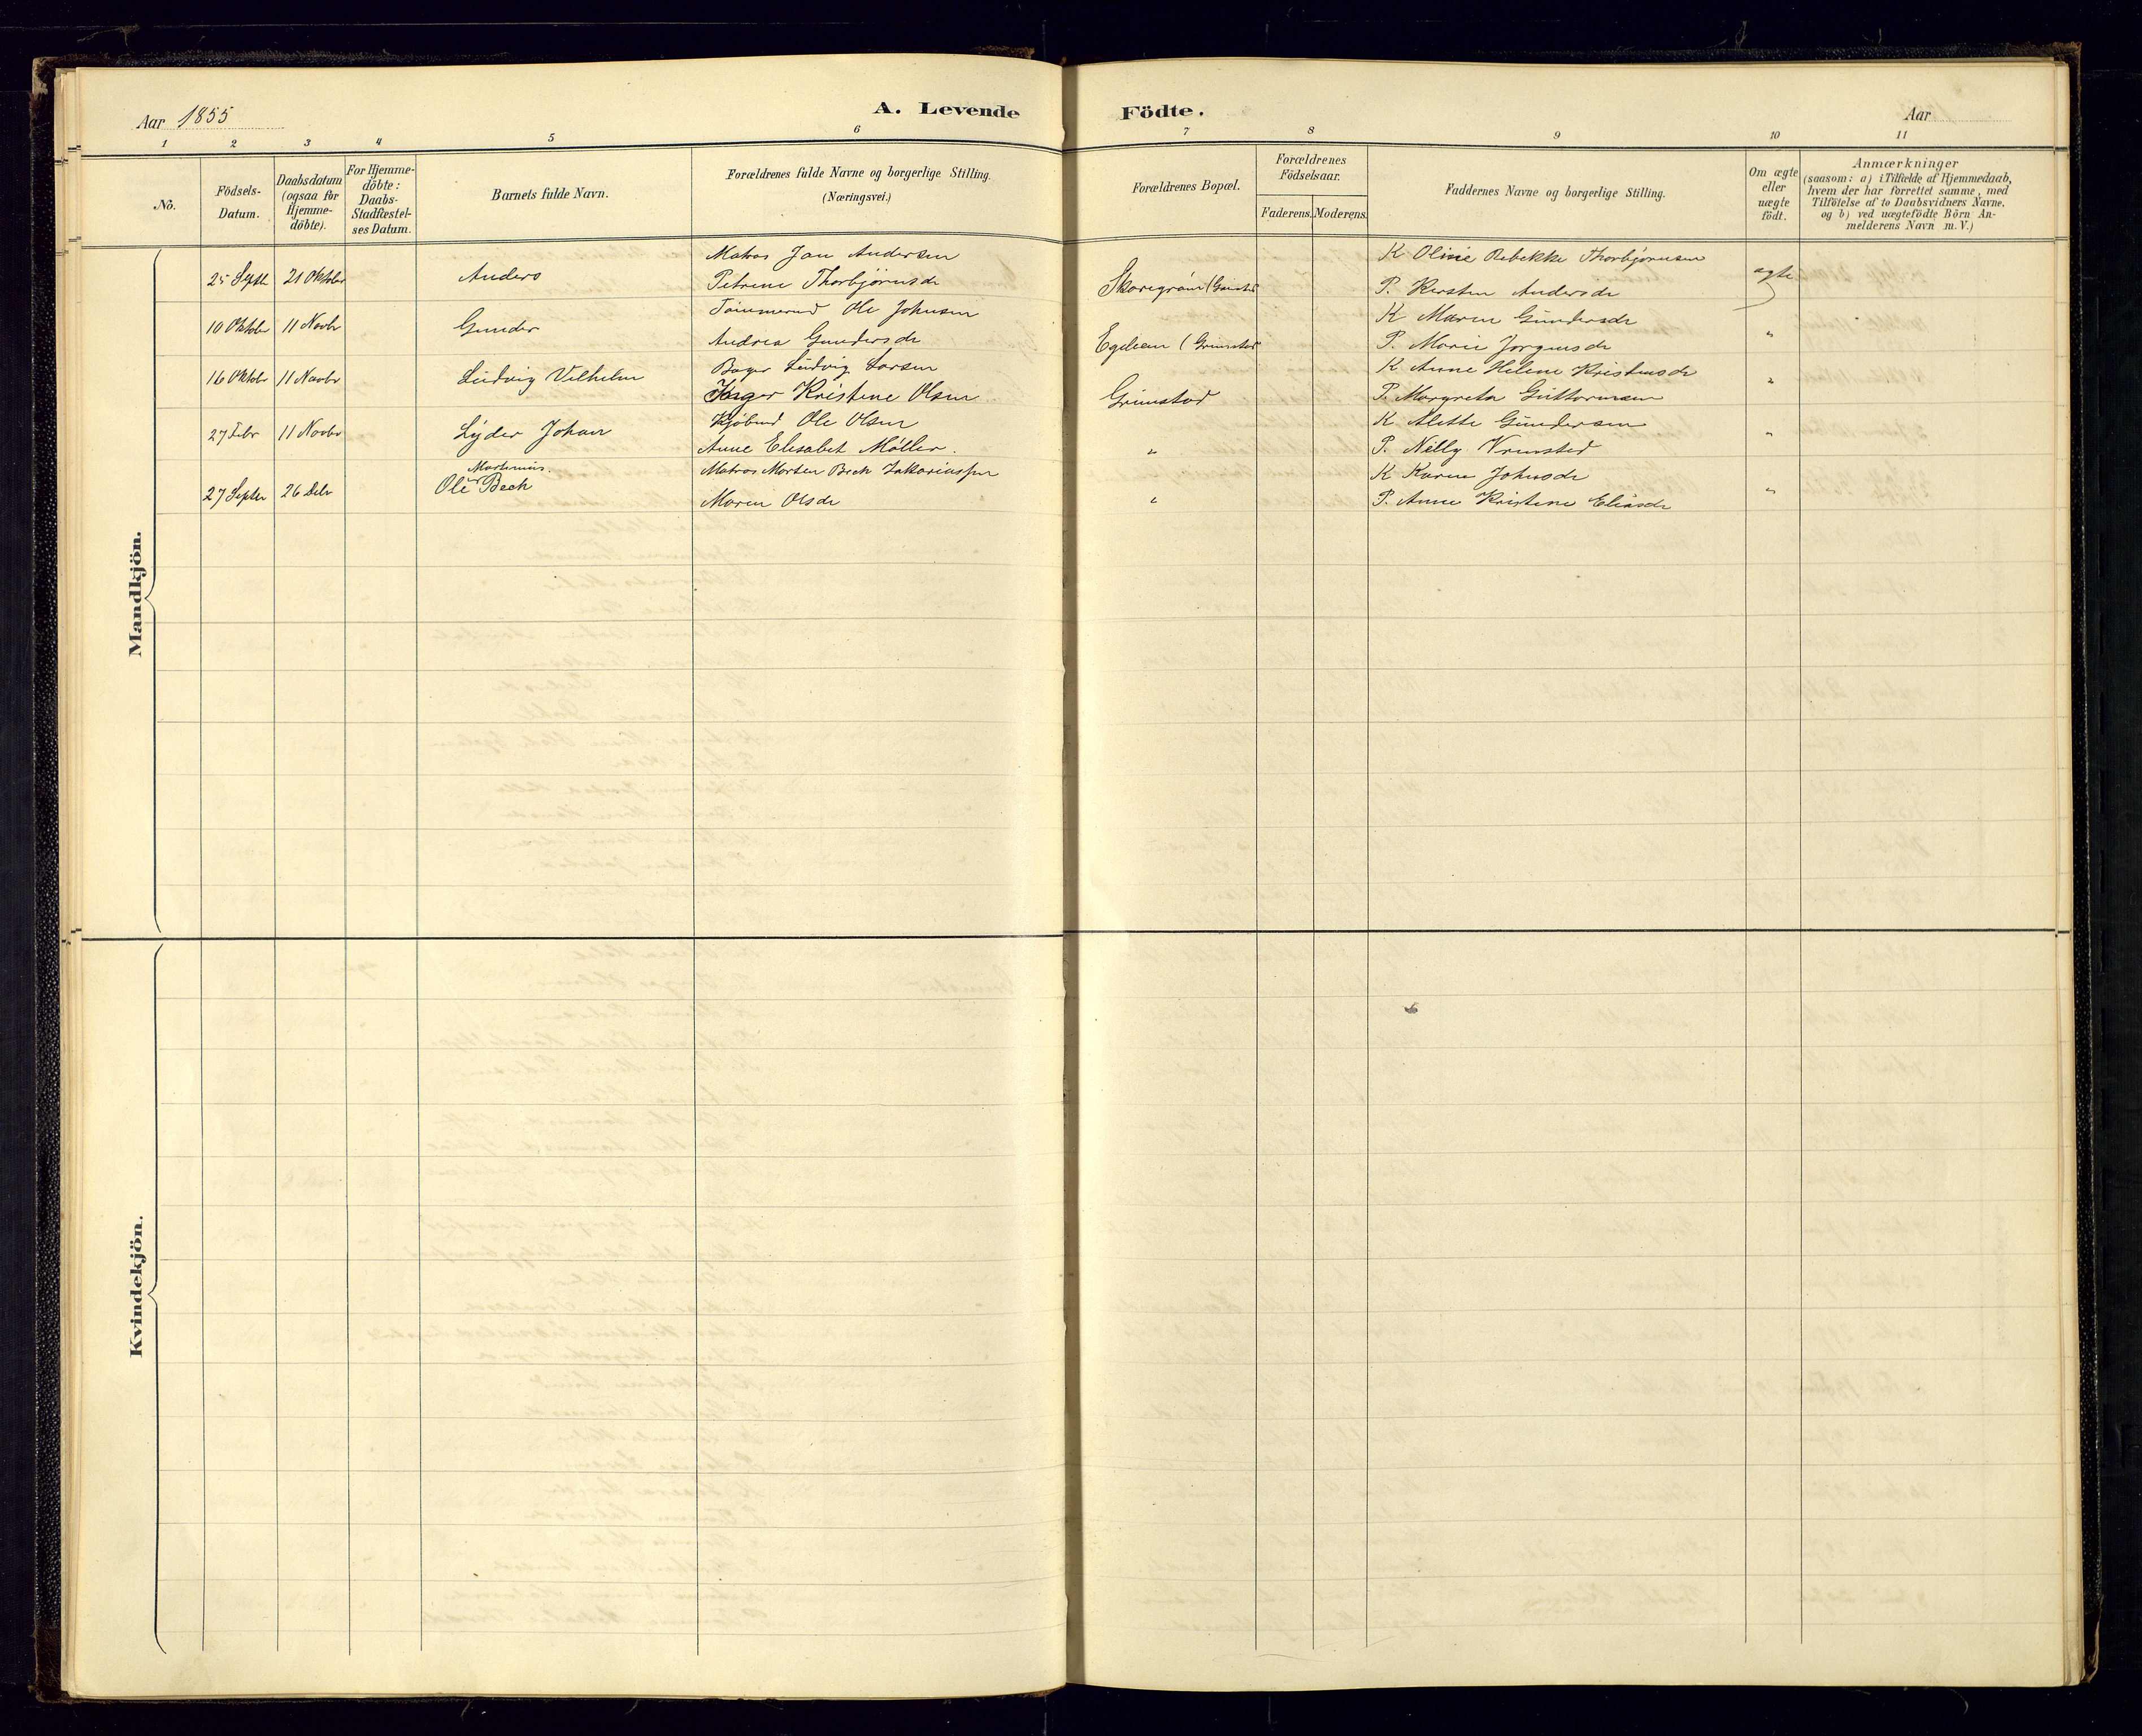 Aar 1855
A. Levende Födte.
Aar
1 2 3 4 5 6 7 8 9 10 11
No.
Födsels-
Datum.
Daabsdatum
(ogsaa for
Hjemme-
döbte).
For Hjemme-
döbte:
Daabs-
Stadfæstel-
ses Datum.
Barnets fulde Navn.
Forældrenes fulde Navne og borgerlige Stilling.
(Næringsvei.)
Forældrenes Bopæl.
Forældrenes
Födselsaar.
Faderens. Moderens.
Faddernes Navne og borgerlige Stilling.
Om ægte
eller
uægte
födt.
Anmærkninger
(saasom: a) i Tilfælde af Hjemmedaab,
hvem der har forrettet samme, med
Tilföielse af to Daabsvidners Navne,
og b) ved uægtefödte Börn An-
melderens Navn m. V.)
Mandkjön.
Matros Jan Andersen K Olivie Rebekke Thorbjörnsen
25 Septb 21 Oktober Anders Petrine Thorbjörnsdr P. Kersten Andersdr ægte
Tømmermd Ole Johnsen K Maren Gundersdr
10 Oktobr 11 Novbr Gunder Andrea Gundersdr (Grimstad P. Marie Jørgensdr "
Bager Ludvig Larsen K Anne Helene Kristensdr
16 Oktobr 11 Novbr Ludvig Vilhelm Kristine Olsen Grimstad P. Margrete Guttormsen "
Kjöbmd Ole Olsen K Alette Gundersen
27 Febr 11 Novbr Lyder Johan Anne Elisabet Möller. " P. Nelly "
Martinius. Matros Morten Bech Zakariassen K Karen Johnsdr
27 Septbr 26 Debr Ole Bech Maren Olsdr " P. Anne Kristine Eliasdr "
Kvindekjön.